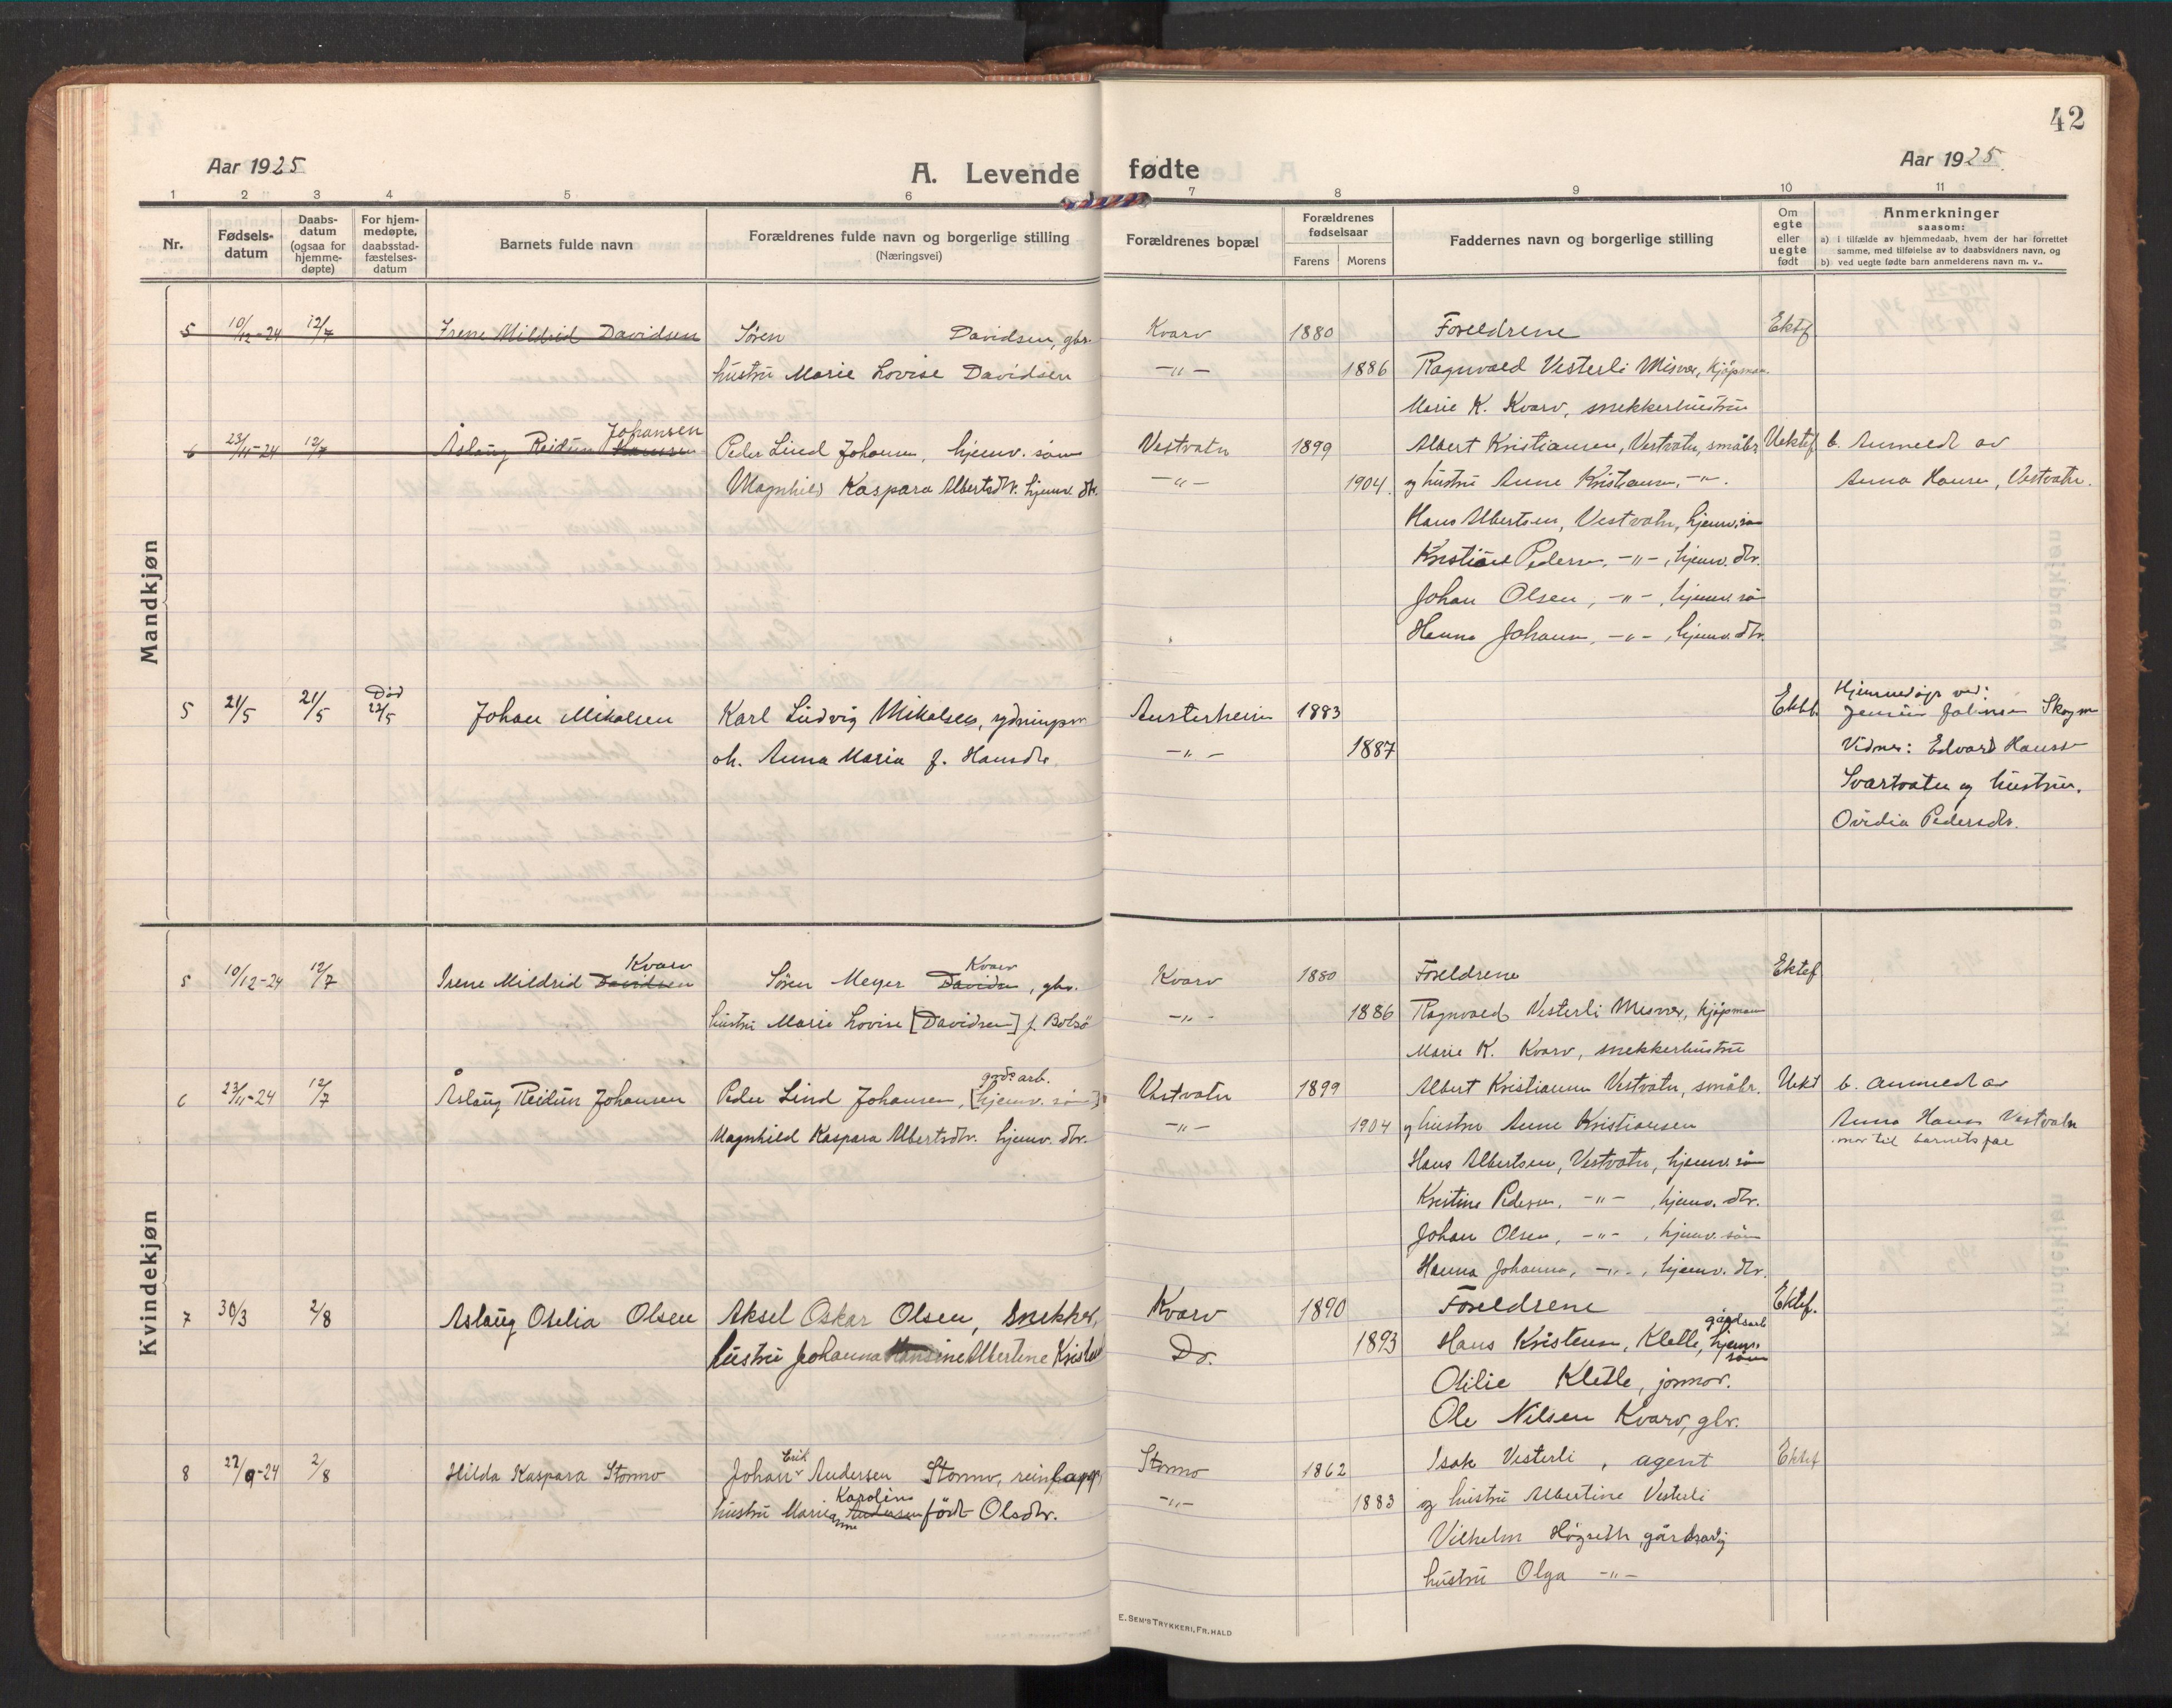 42
Aar 1925
A. Levende fødte
Aar 1925.
1 2 3 4 5 6 7 8 9 10 11
Nr.
Fødsels-
datum
Daabs-
datum
(ogsaa for
hjemme-
døpte)
For hjem-
medøpte,
daabsstad-
fæstelses-
datum
Barnets fulde navn
Forældrenes fulde navn og borgerlige stilling
(Næringsvei)
Forældrenes bopæl
Forældrenes
fødselsaar
Farens Morens
Faddernes navn og borgerlige stilling
Om
egte
eller
uegte
født
Anmerkninger
saasom:
a) i tilfælde av hjemmedaab, hvem der har forrettet
samme, med tilføielse av to daabsvidners navn, og
b) ved uegte fødte barn anmelderens navn m. v..
Mandkjøn
5 10/12-24 12/7 Irene Mildrid Davidsen Søren Davidsen, gbr. Kvarv 1880 Foreldrene Ektef
hustru Marie Lovise Davidsen -"- 1886 Ragnvald Vesterli Misvær, kjøpman
Marie K. Kvarv, snekkerhustru
Johansen
6 23/11-24 12/7 Åslaug Reidun Hansen Peder Lind Johansen, hjemv. søn Vestvatn 1899 Albert Kristiansen, Vestvatn, småbr. Uektef b. Anmeldt av
Magnhild Kaspara Albertsdtr. hjemv. dtr. -"- 1904 og hustru Anne Kristiansen, -"-. Anna Hansen, Vestvatn.
Hans Albertsen, Vestvatn, hjemv. søn
Kristine Pedersen, -"-, hjemv. dtr.
Johan Olsen, -"-, hjemv. søn
Hanna Johansen, -"-, hjemv. dtr.
Død
5 21/5 21/5 22/5 Johan Mikalsen Karl Ludvig Mikalsen, rydningsm Austerheim 1883 Ektef. Hjemmedøpt ved:
Johansen Skogmo
oh. Anna Maria f. Hansdtr. -"- 1887 Vidner: Edvard Hansen
Svartvatn og hustru.
Ovidia Pedersdtr.
Kvindekjøn
Kvarv Kvarv
5 10/12-24 12/7 Irene Mildrid Davidsen Søren Meyer Davidsen, gbr. Kvarv 1880 Foreldrene Ektef
hustru Marie Lovise [Davidsen] f. Bolsø -"- 1886 Ragnvald Vesterli Misvær, kjøpman
Marie K. Kvarv, snekkerhustru
gårdsarb.
6 23/11-24 12/7 Åslaug Reidun Johansen Peder Lind Johansen, [hjemv. søn] Vestvatn 1899 Albert Kristiansen Vestvatn, småbr. Uekt b. anmeldt av
Magnhild Kaspara Albertsdtr. hjemv. dtr. -"- 1904 og hustru Anne Kristiansen Anna Hansen Vestvatn
mor til barnets far
Hans Albertsen, Vestvatn, hjemv. søn
Kristine Pedersen, -"-, hjemv. dtr.
Johan Olsen, -"-, hjemv. søn
Hanna Johansen, -"-, hjemv. dtr.
7 30/3 2/8 Aslaug Otelia Olsen Aksel Oskar Olsen, snekker, Kvarv 1890 Foreldrene Ektef.
gårdsarb
hustru Johanna Hansine Albertine Do. 1893 Hans Kristensen, Klette, hjemv. søn
Otilie Klette, jormor.
Ole Nilsen Kvarv, gbr.
Erik
8 22/9-24 2/8 Hilda Kaspara Stormo Johan Andersen Stormo, reinlapp, Stormo 1862 Isak Vesterli, agent Ektef
Karolin
hustru Marieanne Andersen født Olsdtr. -"- 1883 og hustru Albertine Vesterli
Vilhelm Høgseth, gårdsarb
hustru Olga -"-
E. SEM'S TRYKKERI, FR.HALD